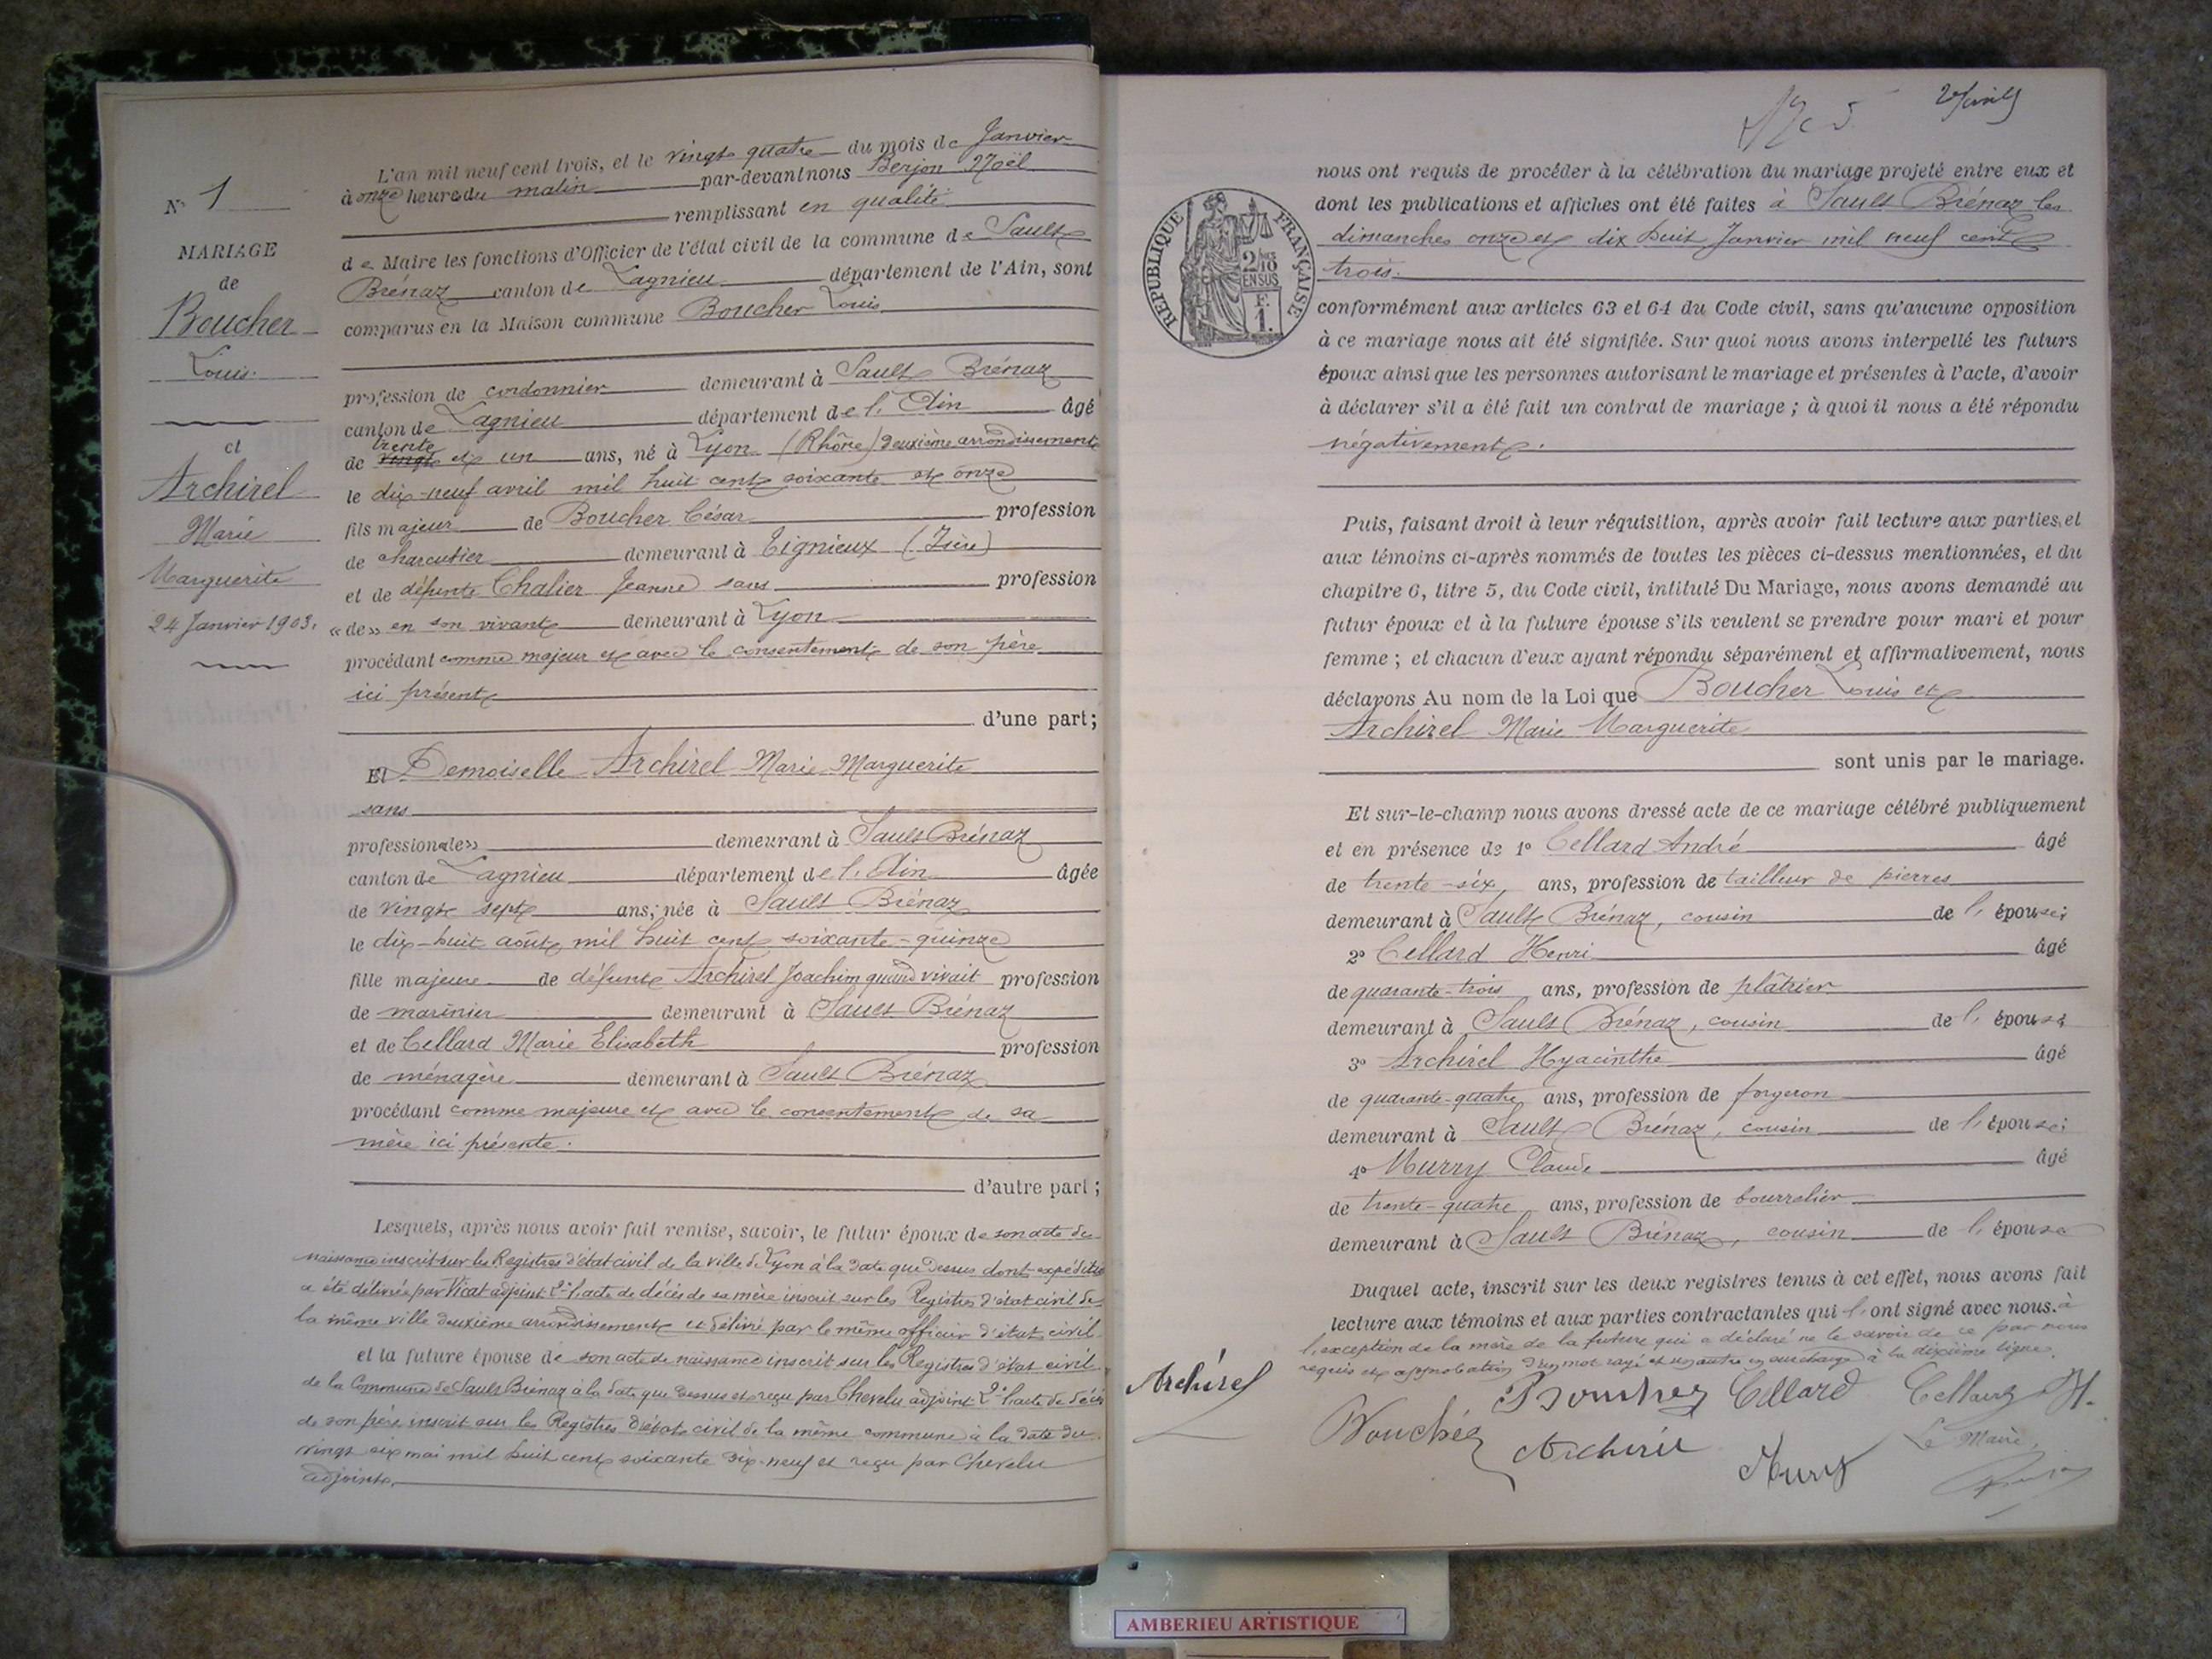 N° 1
MARIAGE
de
Boucher
Louis.
et
Archirel
Marie
Marguerite
24 Janvier 1903.
L'an mil neuf cent trois, et le vingt quatre du mois de Janvier
à onze heure du matin par-devant nous Berjon Noël
remplissant en qualité
de Maire les fonctions d'Officier de l'état civil de la commune de Sault
Brénaz canton de Lagnieu département de l'Ain, sont
comparus en la Maison commune Boucher Louis
profession de cordonnier demeurant à Sault Brénaz
canton de Lagnieu département de l'Ain âgé
trente
de vingt et un ans, né à Lyon (Rhône) deuxième arrondissement
le dix-neuf avril mil huit cent soixante et onze
fils majeur de Boucher César profession
de charcutier demeurant à Tignieux (Isère)
et de défunte Chalier Jeanne sans profession
«de» en son vivant demeurant à Lyon
procédant comme majeur et avec le consentement de son père
ici présent
d'une part;
Et Demoiselle Archirel Marie Marguerite
sans
profession «de» demeurant à Sault Brénaz
canton de Lagnieu département de l'Ain âgée
de vingt sept ans, née à Sault Brénaz
le dix-huit août mil huit cent soixante-quinze
fille majeure de défunt Archirel Joachim quand vivait profession
de marinier demeurant à Sault Brénaz
et de Cellard Marie Elisabeth profession
de ménagère demeurant à Sault Brénaz
procédant comme majeure et avec le consentement de sa
mère ici présente.
d'autre part;
Lesquels, après nous avoir fait remise, savoir, le futur époux de son acte de
naissance inscrit sur les Registres d'état civil de la ville de Lyon à la date que dessus dont expédition
a été délivrée par Vicat adjoint 2° l'acte de décès de sa mère inscrit sur les Registres d'état civil de
la même ville deuxième arrondissement et délivré par le même officier d'état civil
et la future épouse de son acte de naissance inscrit sur les Registres d'état civil
de la Commune de Sault Brénaz à la date que dessus et reçu par Chevelu adjoint 2° l'acte de décès
de son père inscrit sur les Registres d'état civil de la même commune à la date du
vingt six mai mil huit cent soixante dix-neuf et reçu par Chevelu
adjoint.
N° 5
RÉPUBLIQUE FRANÇAISE
2/10 EN SUS
F. 1.
nous ont requis de procéder à la célébration du mariage projeté entre eux et
dont les publications et affiches ont été faites à Sault Brénaz les
dimanches onze et dix huit Janvier mil neuf cent
trois.
conformément aux articles 63 et 64 du Code civil, sans qu'aucune opposition
à ce mariage nous ait été signifiée. Sur quoi nous avons interpellé les futurs
époux ainsi que les personnes autorisant le mariage et présentes à l'acte, d'avoir
à déclarer s'il a été fait un contrat de mariage ; à quoi il nous a été répondu
négativement.
Puis, faisant droit à leur réquisition, après avoir fait lecture aux parties, et
aux témoins ci-après nommés de toutes les pièces ci-dessus mentionnées, et du
chapitre 6, titre 5, du Code civil, intitulé Du Mariage, nous avons demandé au
futur époux et à la future épouse s'ils veulent se prendre pour mari et pour
femme ; et chacun d'eux ayant répondu séparément et affirmativement, nous
déclarons Au nom de la Loi que Boucher Louis et
Archirel Marie Marguerite
sont unis par le mariage.
Et sur-le-champ nous avons dressé acte de ce mariage célébré publiquement
et en présence de 1° Cellard André âgé
de trente-six ans, profession de tailleur de pierres
demeurant à Sault Brénaz, cousin de l'épouse;
2° Cellard Henri âgé
de quarante-trois ans, profession de plâtrier
demeurant à Sault Brénaz, cousin de l'épouse
3° Archirel Hyacinthe âgé
de quarante-quatre ans, profession de forgeron
demeurant à Sault Brénaz, cousin de l'épouse;
4° Murry Claude âgé
de trente-quatre ans, profession de bourrelier
demeurant à Sault Brénaz, cousin de l'épouse
Duquel acte, inscrit sur les deux registres tenus à cet effet, nous avons fait
lecture aux témoins et aux parties contractantes qui l'ont signé avec nous. à
l'exception de la mère de la future qui a déclaré ne le savoir de ce par nous
requis et approbation d'un mot rayé et un autre en surcharge à la dixième ligne.
Archirel
Boucher Cellard Cellard H.
Bouchér Archirel Murry
Le Maire,
AMBERIEU ARTISTIQUE